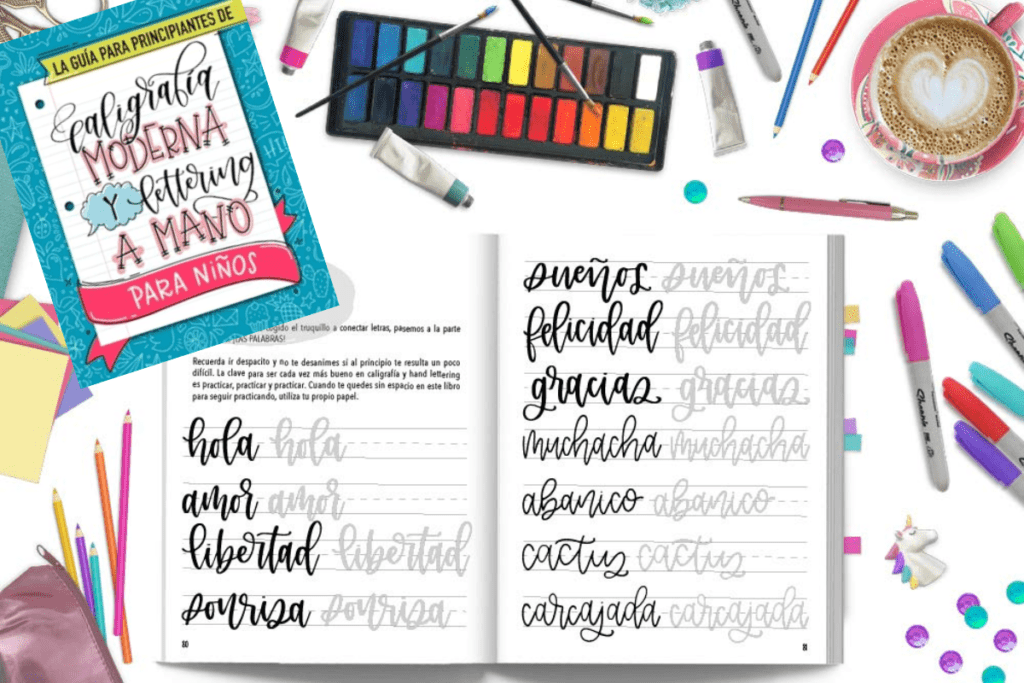 LA GUÍA PARA PRINCIPIANTES DE
caligrafía
MODERNA
Y lettering
A MANO
PARA NIÑOS
el truquillo a conectar letras, pasemos a la parte
PALABRAS!
Recuerda ir despacito y no te desanimes si al principio te resulta un poco
difícil. La clave para ser cada vez más bueno en caligrafía y hand lettering
es practicar, practicar y practicar. Cuando te quedes sin espacio en este libro
para seguir practicando, utiliza tu propio papel.
hola hola
amor amor
libertad libertad
sonrisa sonrisa
80
sueños sueños
felicidad felicidad
gracias gracias
muchacha muchacha
abanico abanico
cactus cactus
carcajada carcajada
81
Sharpie